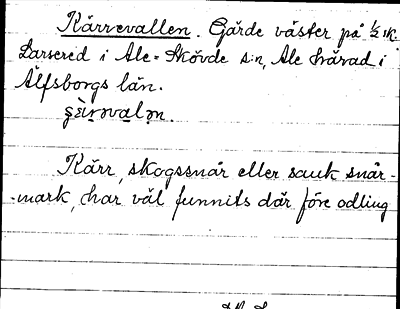 Kärrevallen. Gärde väster på 1/2 sk.
Larsered i Ale-Skövde s:n, Ale härad i
Älfsborgs län.
Kärr, skogssnår eller sank snår-
-mark, har väl funnits där före odling